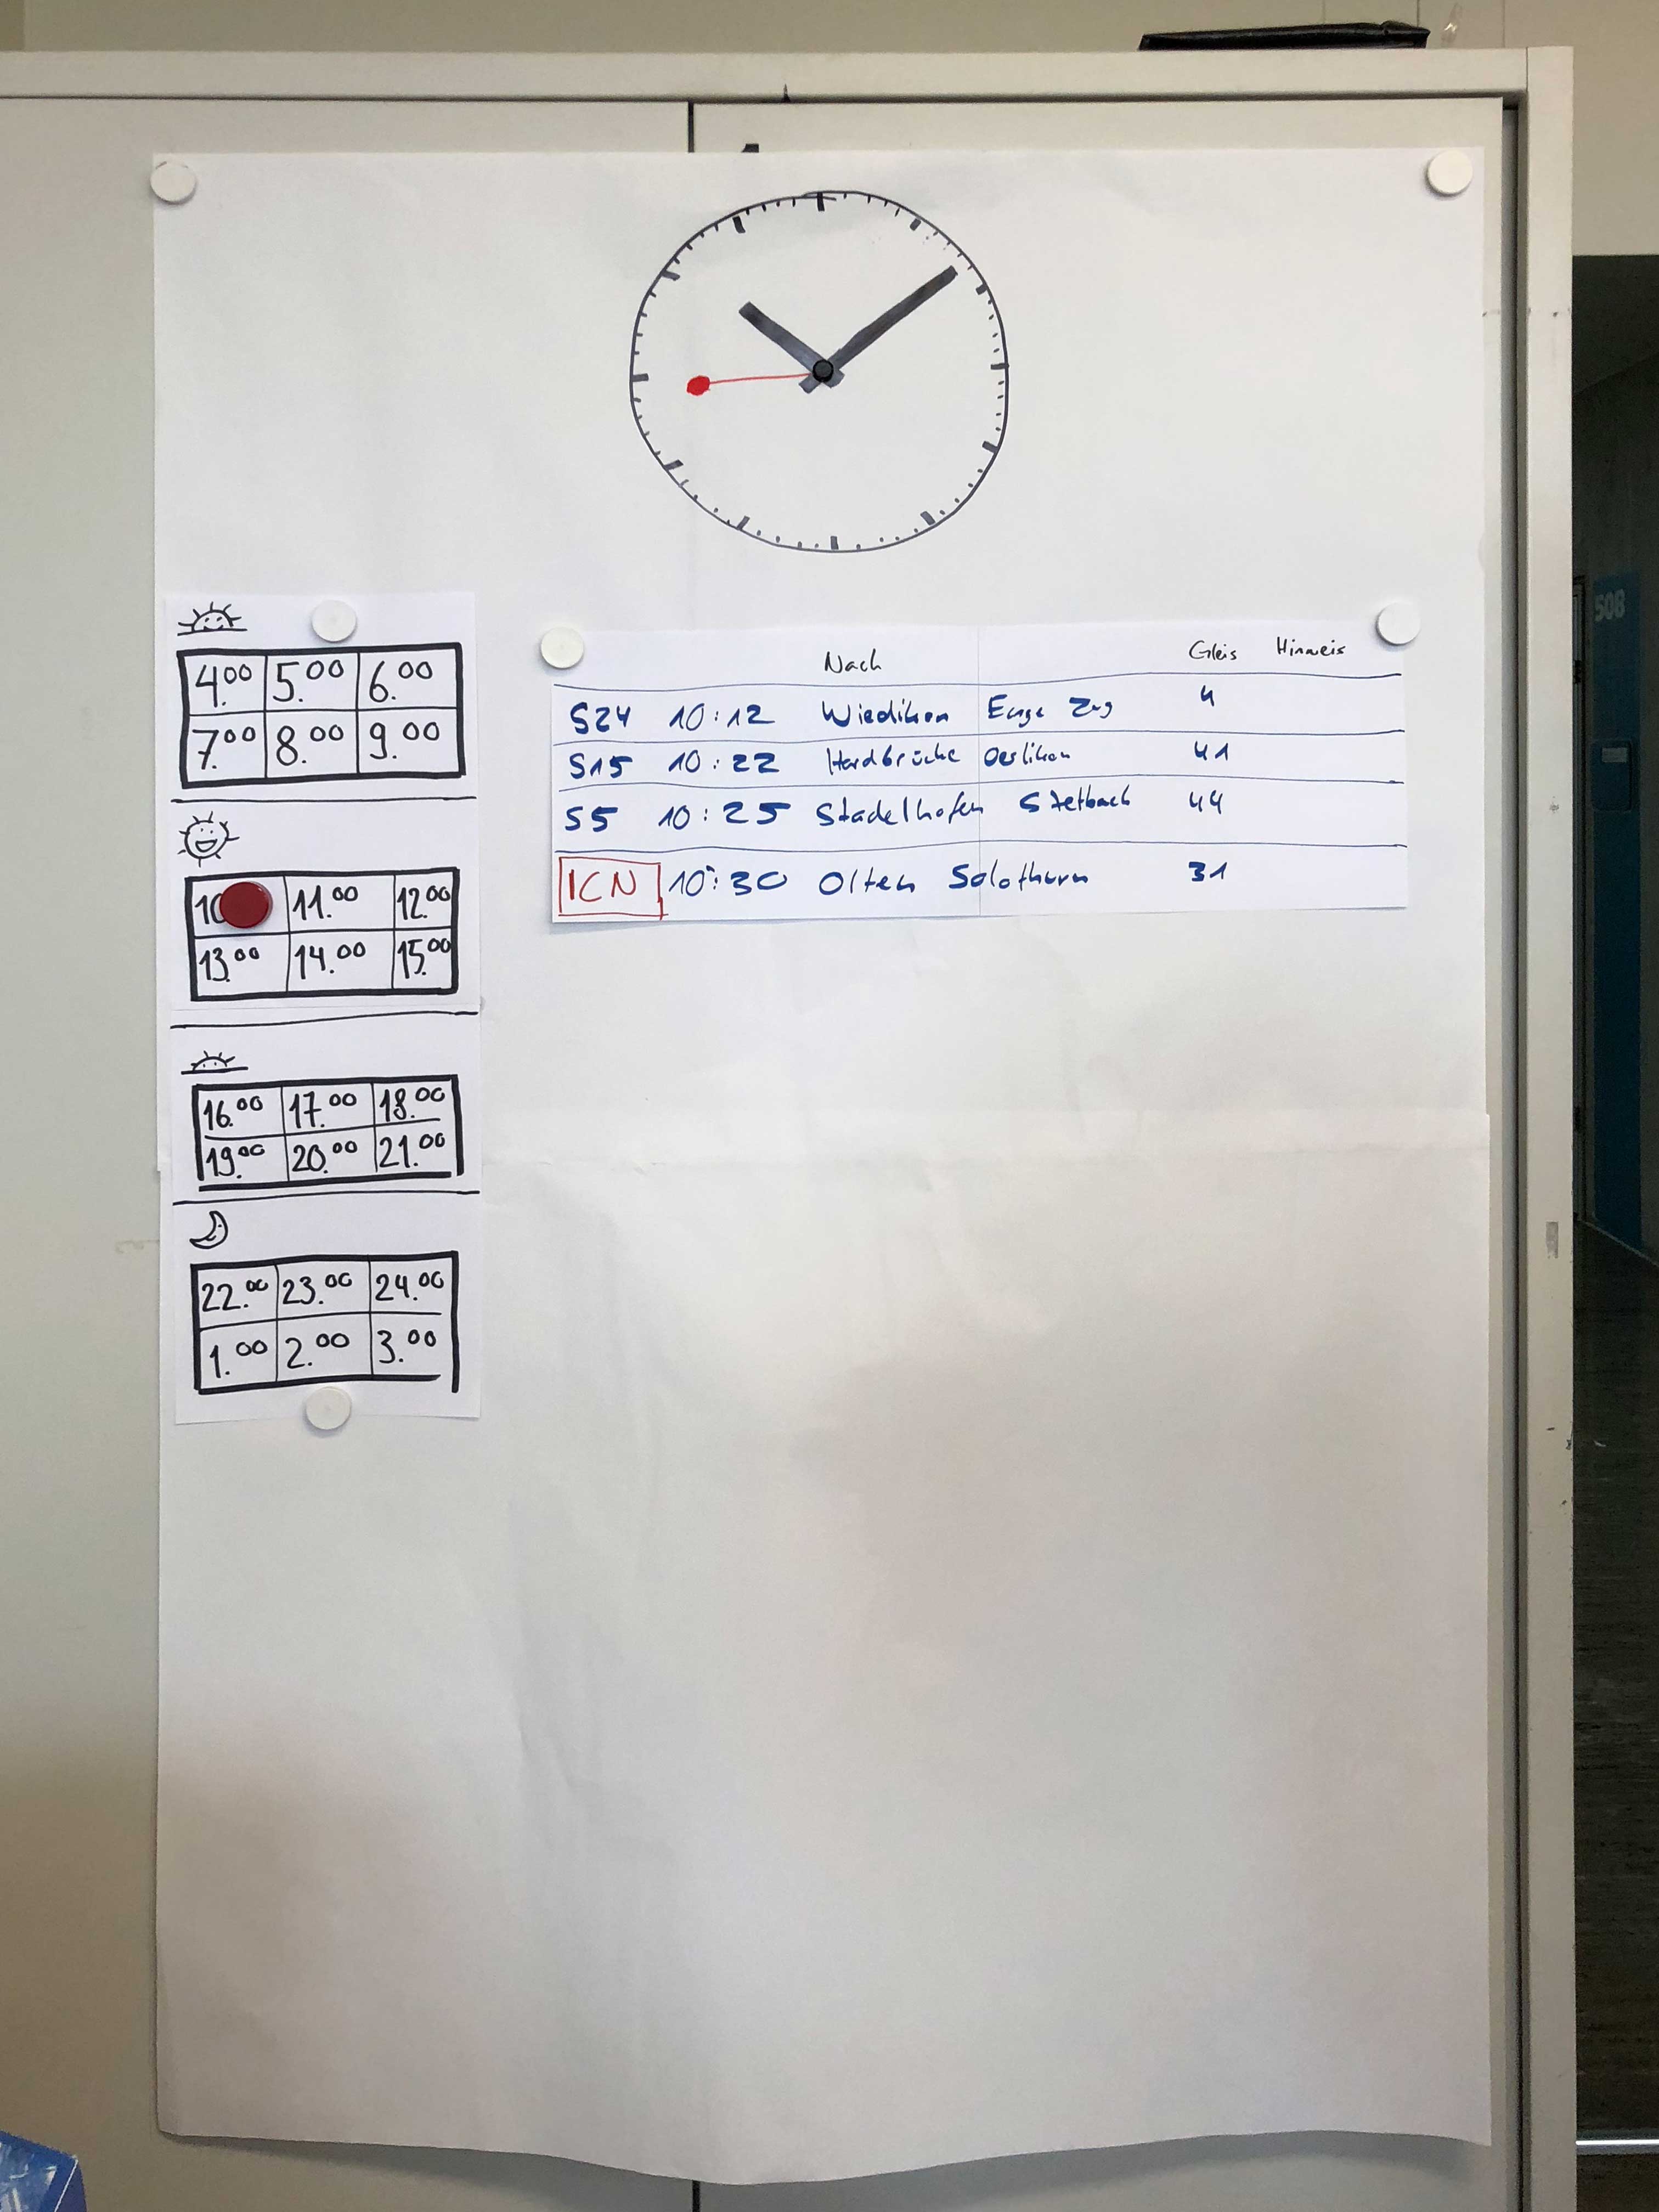 4.00 5.00 6.00
7.00 8.00 9.00
10 11.00 12.00
13.00 14.00 15.00
16.00 17.00 18.00
19.00 20.00 21.00
22.00 23.00 24.00
1.00 2.00 3.00
Nach Gleis Hinweis
S24 10:12 Wiedikon Enge Zug 4
S15 10:22 Hardbrücke Oerlikon 41
S5 10:25 Stadelhofen Stetbach 44
ICN 10:30 Olten Solothurn 31
508